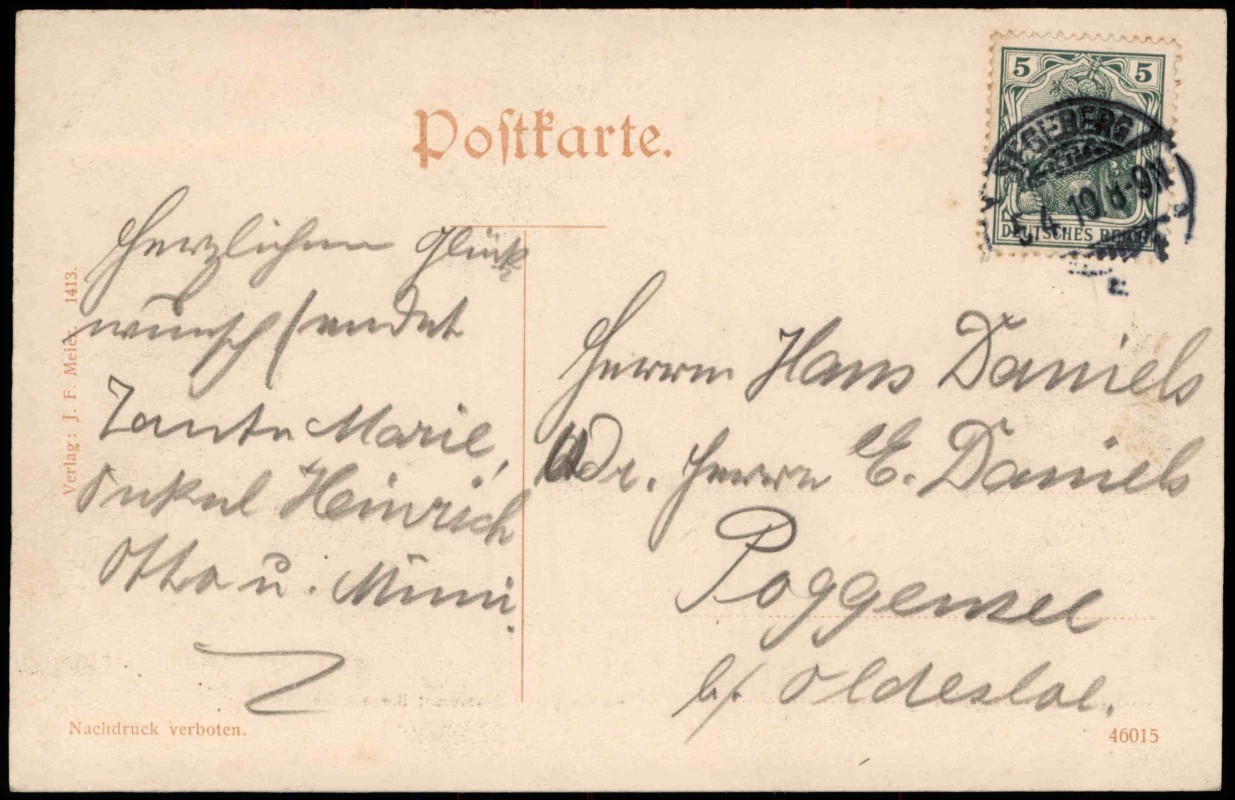 Postkarte.
5 5
SEGEBERG
5.4.10 8-9N
DEUTSCHES REICH
Herzlichen Glück
wunsch sendet
Tante Marie,
Onkel Heinrich
Otto u. Mimi.
Herrn Hans Daniels
Adr. Herrn E. Daniels
Poggensee
b/ Oldesloe.
Verlag: J. F. Meier. 1413.
Nachdruck verboten.
46015